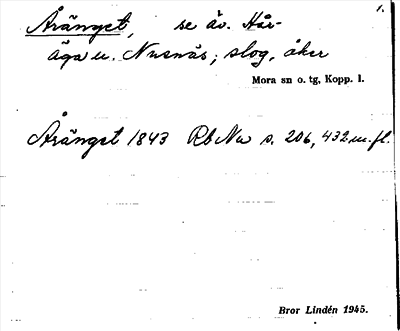 1.
Åränget, se äv. Hår-
äga u. Nusnäs; slog, åker
Mora sn o. tg, Kopp. l.
Åränget 1843 RbNu s. 206, 432 m. fl.
Bror Lindén 1945.